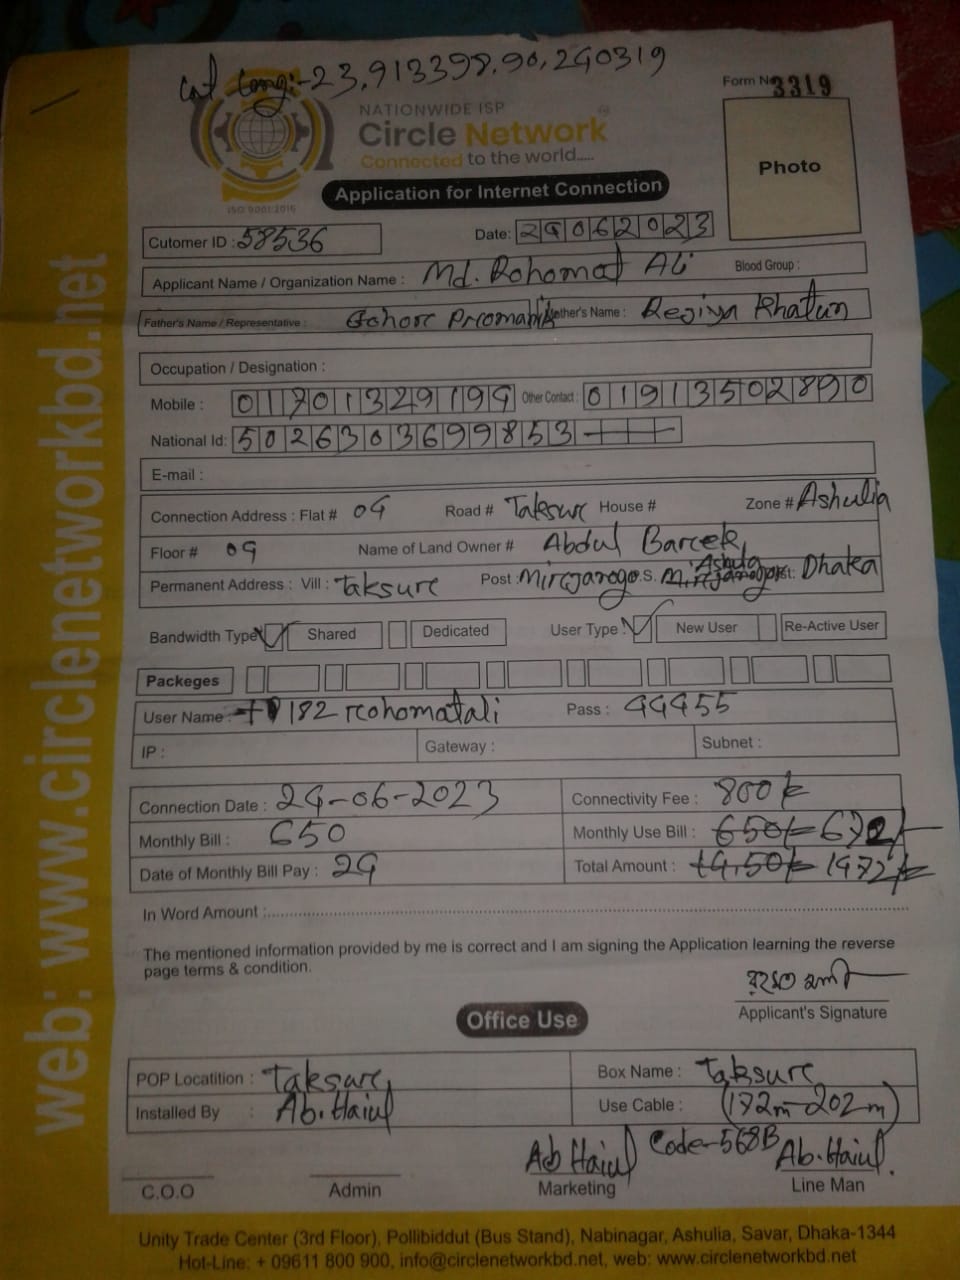 Lat Long:- 23,913398,90,240319
Form No 3319
NATIONWIDE ISP
Circle Network
Connected to the world.....
ISO 9001:2015
Application for Internet Connection
Photo
Cutomer ID : 58536 Date: 24062023
Applicant Name / Organization Name : Md. Rohomat Ali Blood Group :
Father's Name / Representative : Gohor Promanik Mother's Name : Regiya Khatun
Occupation / Designation :
Mobile : 01701329194 Other Contact : 01913502890
National Id: 5026303699853
E-mail :
Connection Address : Flat # 04 Road # Taksur House # Zone # Ashulia
Floor # 04 Name of Land Owner # Abdul Barek
Permanent Address : Vill : Taksure Post : Mirejanogo P.S. Ashulia Dist: Dhaka
Bandwidth Type ✓ Shared Dedicated User Type : ✓ New User Re-Active User
Packeges
User Name : 182 rohomatali Pass : 44455
IP : Gateway : Subnet :
Connection Date : 24-06-2023 Connectivity Fee : 800/-
Monthly Bill : 650 Monthly Use Bill : 650/- 672/-
Date of Monthly Bill Pay : 24 Total Amount : 1450/- 1472/-
In Word Amount :
The mentioned information provided by me is correct and I am signing the Application learning the reverse
page terms & condition.
রহমত আলী
Applicant's Signature
Office Use
POP Locatition : Taksure Box Name : Taksure
Installed By : Ab. Haiul Use Cable : (172m-202m)
Ab Haiul Code-568B Ab. Haiul
C.O.O Admin Marketing Line Man
Unity Trade Center (3rd Floor), Pollibiddut (Bus Stand), Nabinagar, Ashulia, Savar, Dhaka-1344
Hot-Line: + 09611 800 900, info@circlenetworkbd.net, web: www.circlenetworkbd.net
web: www.circlenetworkbd.net